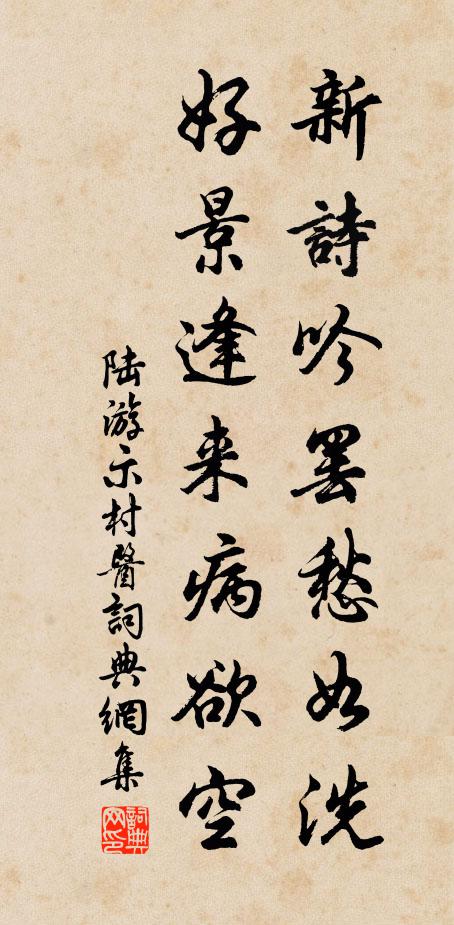 新詩吟罷愁如洗
好景逢来病欲空
陆游示村醫詞典網集
詞典网印